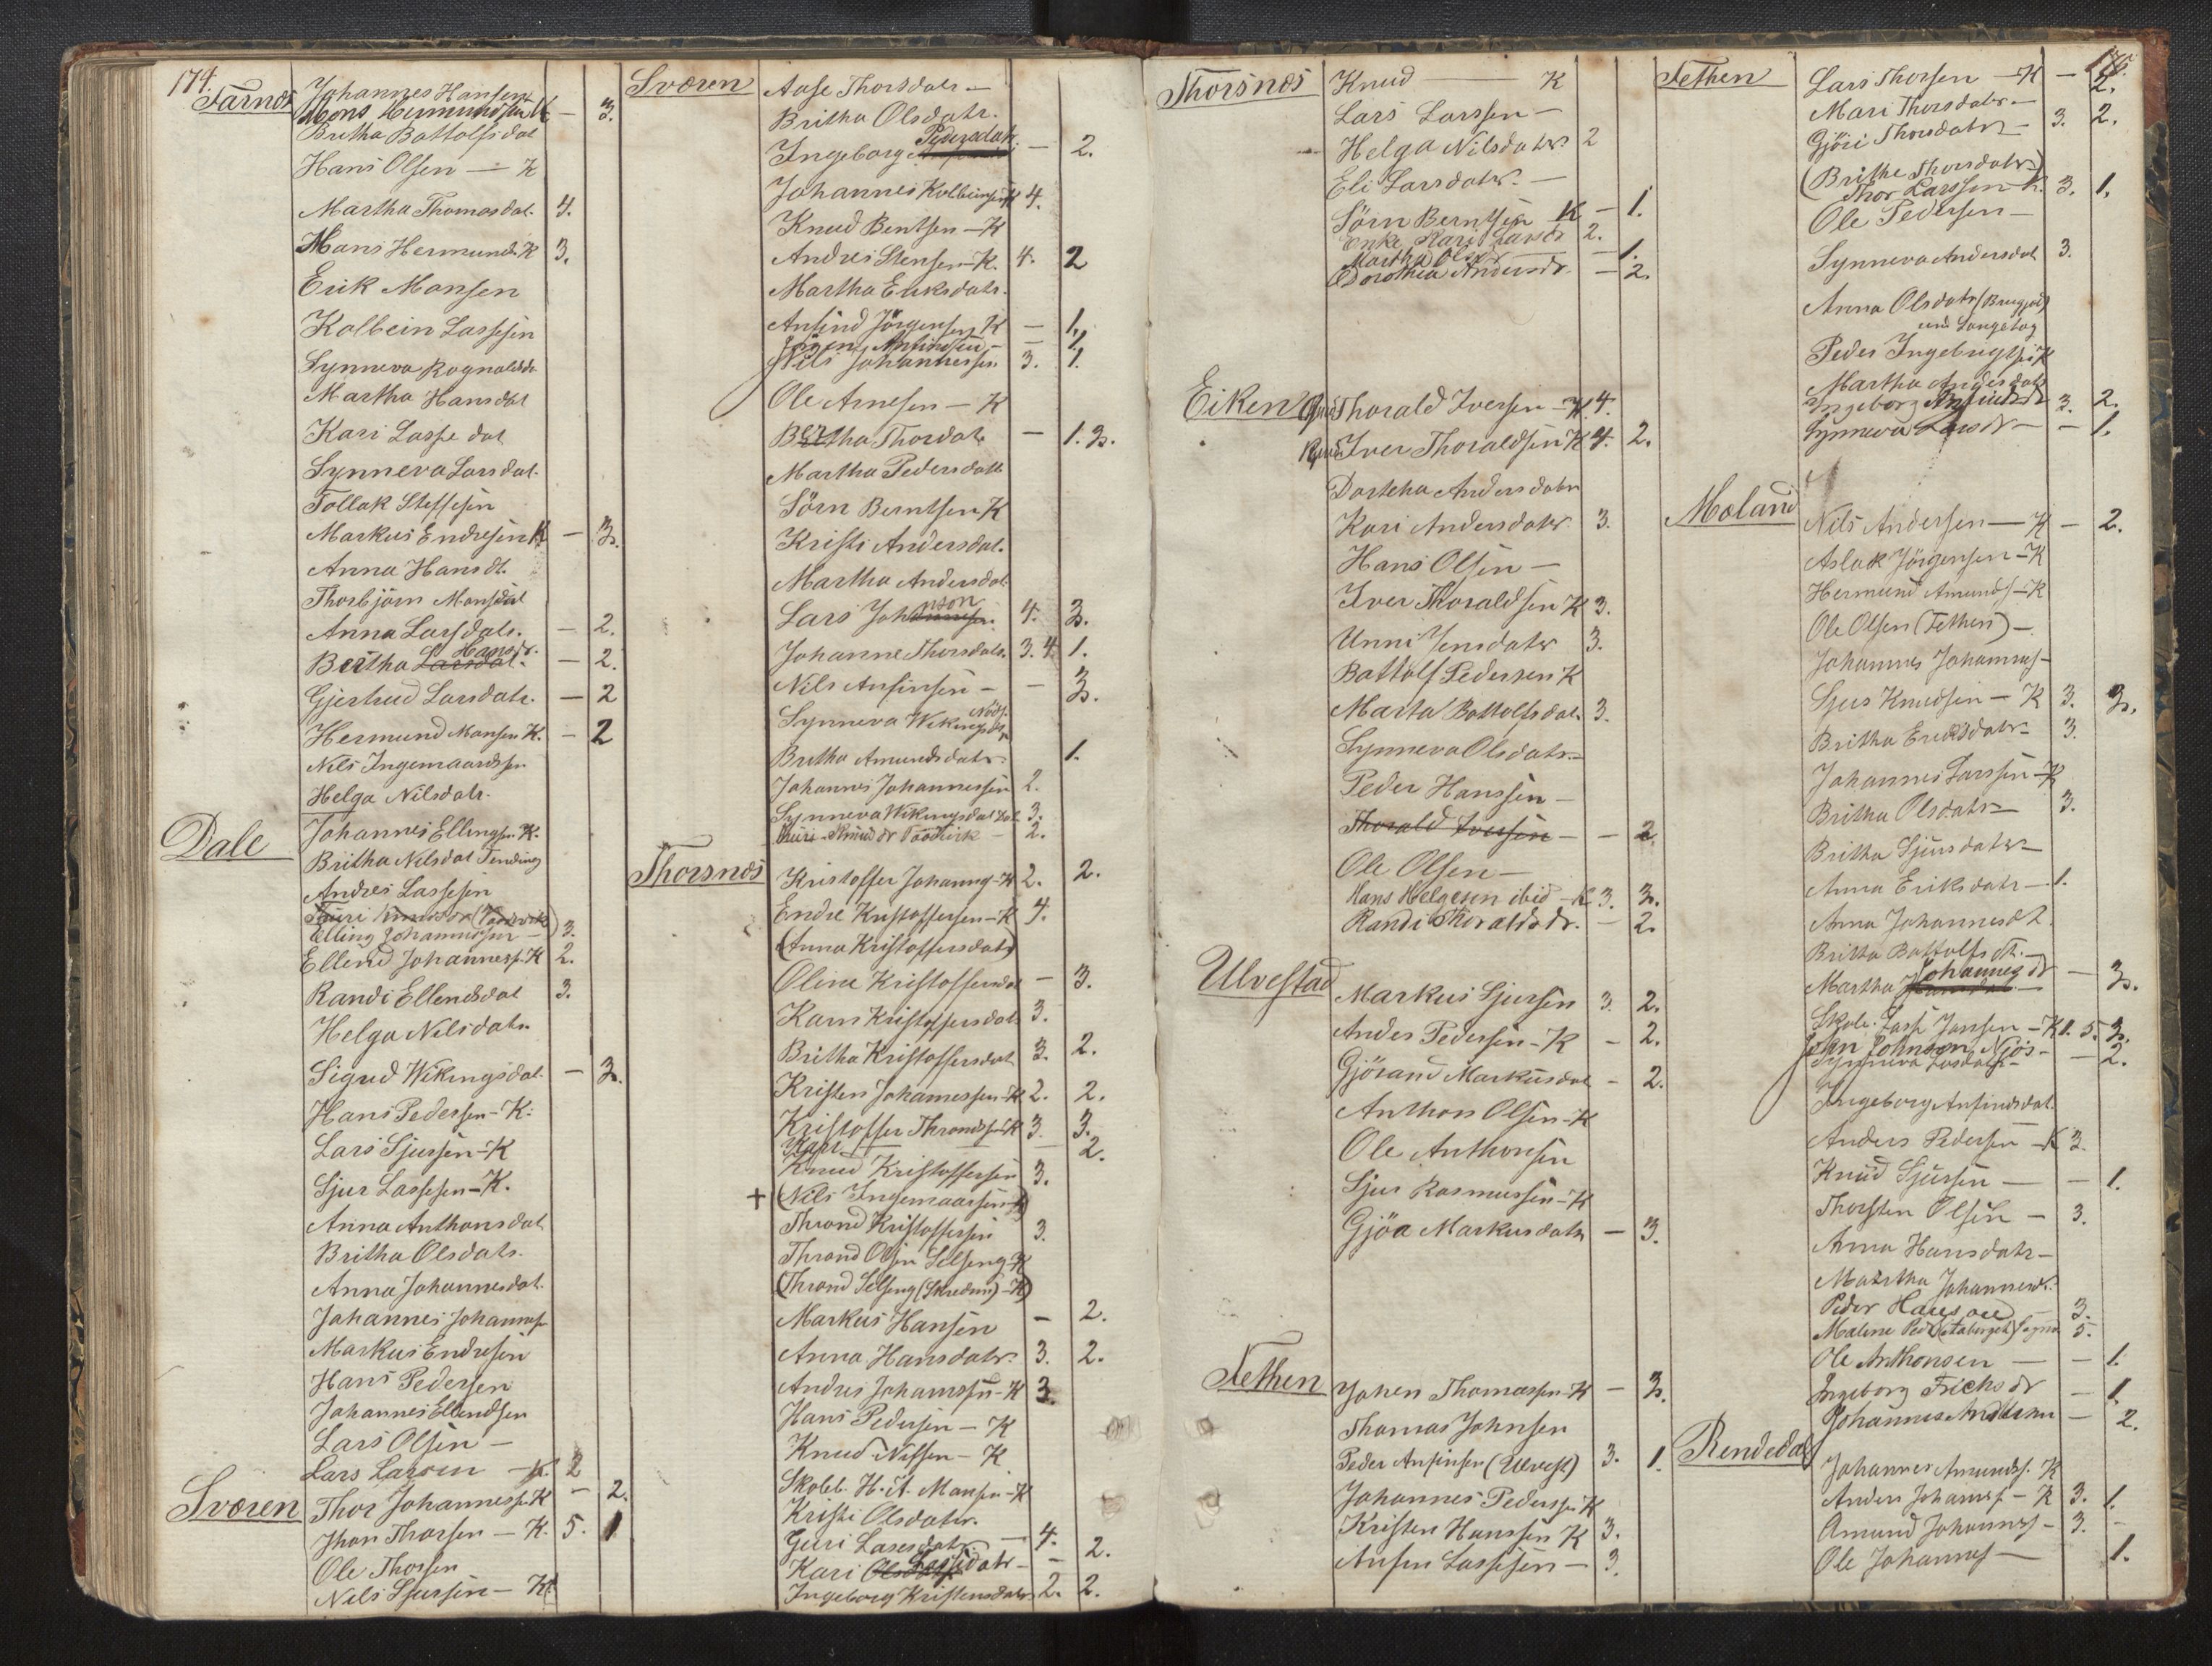 174.
Farnæs
Johannes Hansen
Mons Hermundsen K — 3.
Britha Bottolfsdat
Hans Olsen — K
Martha Thomasdat. 4.
Hans Hermunds. K 3.
Erik Monsen
Kolbein Lassesen
Synneva Rognaldsdr
Martha Hansdat
Kari Lasse dat
Synneva Larsdat.
Tollak Steffesen
Markus Endresen K — 3.
Anna Hansdt.
Thorbjörn Monsdat
Anna Larsdatr. — 2.
Hansdr.
Britha Larsdat. — 2.
Gjertrud Larsdatr. — 2
Hermund Monsen K. — 2
Nils Ingemaardssen
Helga Nilsdatr.
Dale
Johannes Ellingsen K.
Britha Nilsdat Tending
Andres Lassesen
Elling Johannessen — 3.
Ellend Johanness. K 2.
Randi Ellendsdat 3.
Helga Nilsdatr.
Sigrid Wikingsdat. — 3.
Hans Pedersen — K.
Lars Sjursen — K
Sjur Lassesen — K.
Anna Anthonsdat
Britha Olsdatr.
Anna Johannesdat.
Johannes Johannesse
Markus Endresen
Hans Pedersen
Johannes Ellendsen
Lars Olsen —
Lars Larsen — K. 2
Sværen
Thor Johanness. K — 2.
Jhon Thorsen — K. 5. 1
Ole Thorsen
Nils Sjursen — K
Sværen
Aase Thorsdatr —
Britha Olsdatr.
Pedersdatr.
Ingeborg — 2.
Johannes Kolbeinsen K 4.
Knud Bentsen — K
Andres Stensen — K. 4. 2
Martha Eriksdatr.
Anfind Jörgensen K — 1.
Jörgen Anfindsen — — 1.
Nils Johannessen 3. 1.
Ole Arnesen — K
Bertha Thordatr — 1. 3.
Martha Pedersdatr
Sörn Berntsen K
Kristi Andersdat.
Martha Andersdat.
nson
Lars Johannesen. 4. 3.
Johanne Thorsdatr. 3. 4. 1.
Nils Anfinsen — — 3.
Synneva Wikingsdtr
Britha Amundsdatr. 1.
Johannes Johannessen 2.
Synneva Wikingsdat 3.
Guri Knuds dr — 2.
Thorsnæs
Kristoffer Johanns — K 2. 2.
Endre Kristoffersen — K 4.
(Anna Kristoffersdatr)
Oline Kristoffersdat — 3.
Karn Kristoffersdatr 3.
Britha Kristoffersdat 3. 2.
Kristen Johannessen — K 2. 2.
Kristoffer Throndsen K 3. 3.
Kari — 2.
Knud Kristoffersen 3.
+ (Nils Ingemaarsen K)
Thrond Kristoffersen 3.
Thrond Olsen Selseng K
(Thrond Selseng (Skreden) — K)
Markus Hansen — 2.
Anna Hansdatr. 3. 2.
Andres Johanssen — K 3.
Hans Pedersen — K
Knud Nilssen — K
Skoleb. H. A. Monsen — K
Kristi Olsdatr.
Guri Lassesdatr. — 4.
Lassedatr
Kari Olsdatr — — 2.
Ingeborg Kristensdatr 2. 2.
Thorsnæs
Knud — K
Lars Larssen —
Helga Nilsdatr. 2
Eli Larsdatr. —
Sörn Berntsen K — 1.
Enke Kari Larsdr 2.
Martha Ols — 1.
Dorothea Andersdr. — 2.
Eiken
Thorald Iversen — K 4.
Iver Thoraldsen K 4. 2.
Dorthea Andersdatr
Kari Andersdatr. 3.
Hans Olsen —
Iver Thoraldsen K 3.
Unni Jensdatr 3.
Bottolf Pedersen K
Marta Bottolfsdat. 3.
Synneva Olsdatr. —
Peder Hanssen —
Thorald Iversen — — 2.
Ole Olsen —
Hans Helgesen ibid — K 3. 3.
Randi Thoraldsdr. — 2.
Ulvestad
Markus Sjursen 3. 2.
Andes Pedersen — K — 2.
Gjörand Markusdat — 2.
Anthon Olsen — K
Ole Anthonsen
Sjur Rasmussen — K
Gjöa Markusdatr — 3.
Fethen
Johen Thomassen — K — 3.
Thomas Johnsen
Peder Anfinsen (Ulvest) 3. 1.
Johannes Pederssen K
Kristen Hanssen K 3.
Anfin Lassesen — 3.
175.
Fethen
Lars Thorsen — K — 2.
Mari Thorsdatr —
Gjöri Thorsdatr — 3. 2.
(Brithe Thorsdatr)
Thor Larssen — K. 3. 1.
Ole Pedersen —
Synneva Andersdat 3.
Anna Olsdatr
Peder Ingebrigtsen K
Martha Andersdatr
Ingeborg Anfindsdr 3. 2.
Synneva Larsdr — — 1.
Moland
Nils Andersen — K — 2.
Aslak Jörgensen — K
Hermund Amunds — K
Ole Olsen (Fethen) —
Johannes Johannes —
Sjur Knudsen — K 3. 3.
Britha Eriksdatr — 3.
Johannes Larssen — K
Britha Olsdatr — 3.
Britha Sjursdatr —
Anna Eriksdatr — 1.
Anna Johannesdt.
Britha Bottolfsdt. —
Johannes dr
Martha — 3.
Skole. Lasse Jansen — K 1. 5. 3.
John Johnson Njös — — 2.
Ingeborg Anfindsdat.
Anders Pedersen — K 3.
Knud Sjursen — — 1.
Thorsten Olsen — 3.
Anna Hansdatr —
Martha Johannesd.
Peder Hansen — 3.
Malene Ped Sogn 5.
Ole Anthonsen — — 1.
Ingeborg Frichsdr — 1.
Johannes Andersen — 2.
Rendedal
Johannes Amunds. K
Anders Johannes — K 3. 1.
Amund Johannes — 3. —
Ole Johannes — 1.